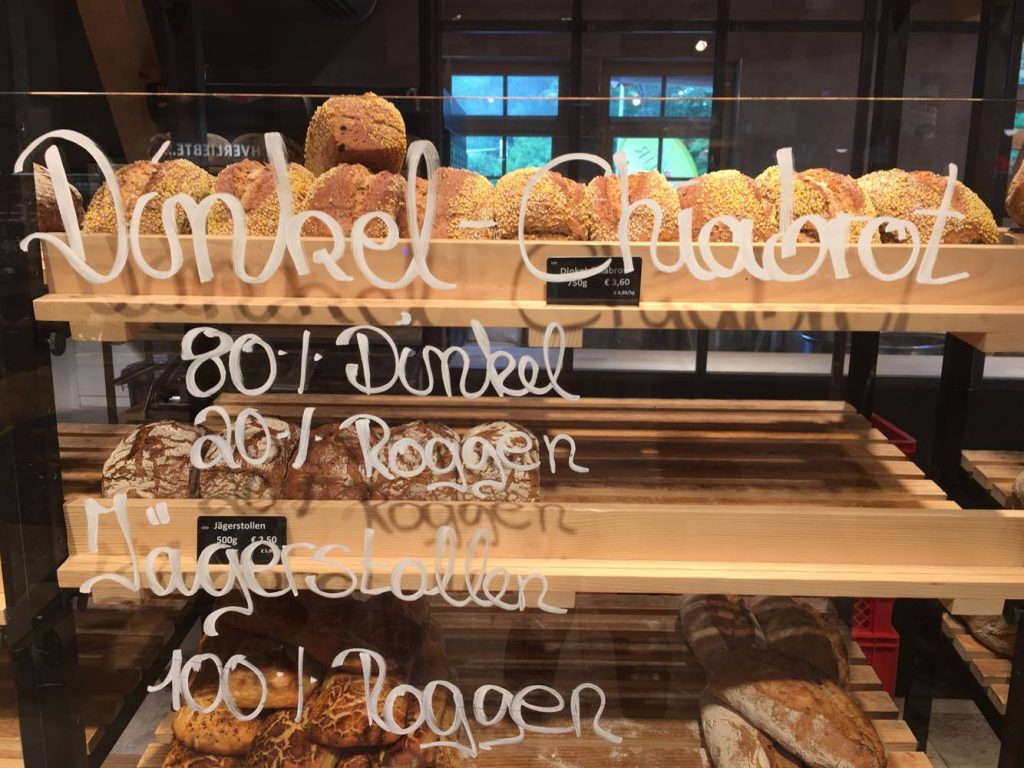 VERLIEBTE..
Dinkel-Chiabrot
750g €3,60
€ 4,80/kg
80% Dinkel
20% Roggen
Jägerstollen
500g € 2,50
Jägerstollen
100% Roggen